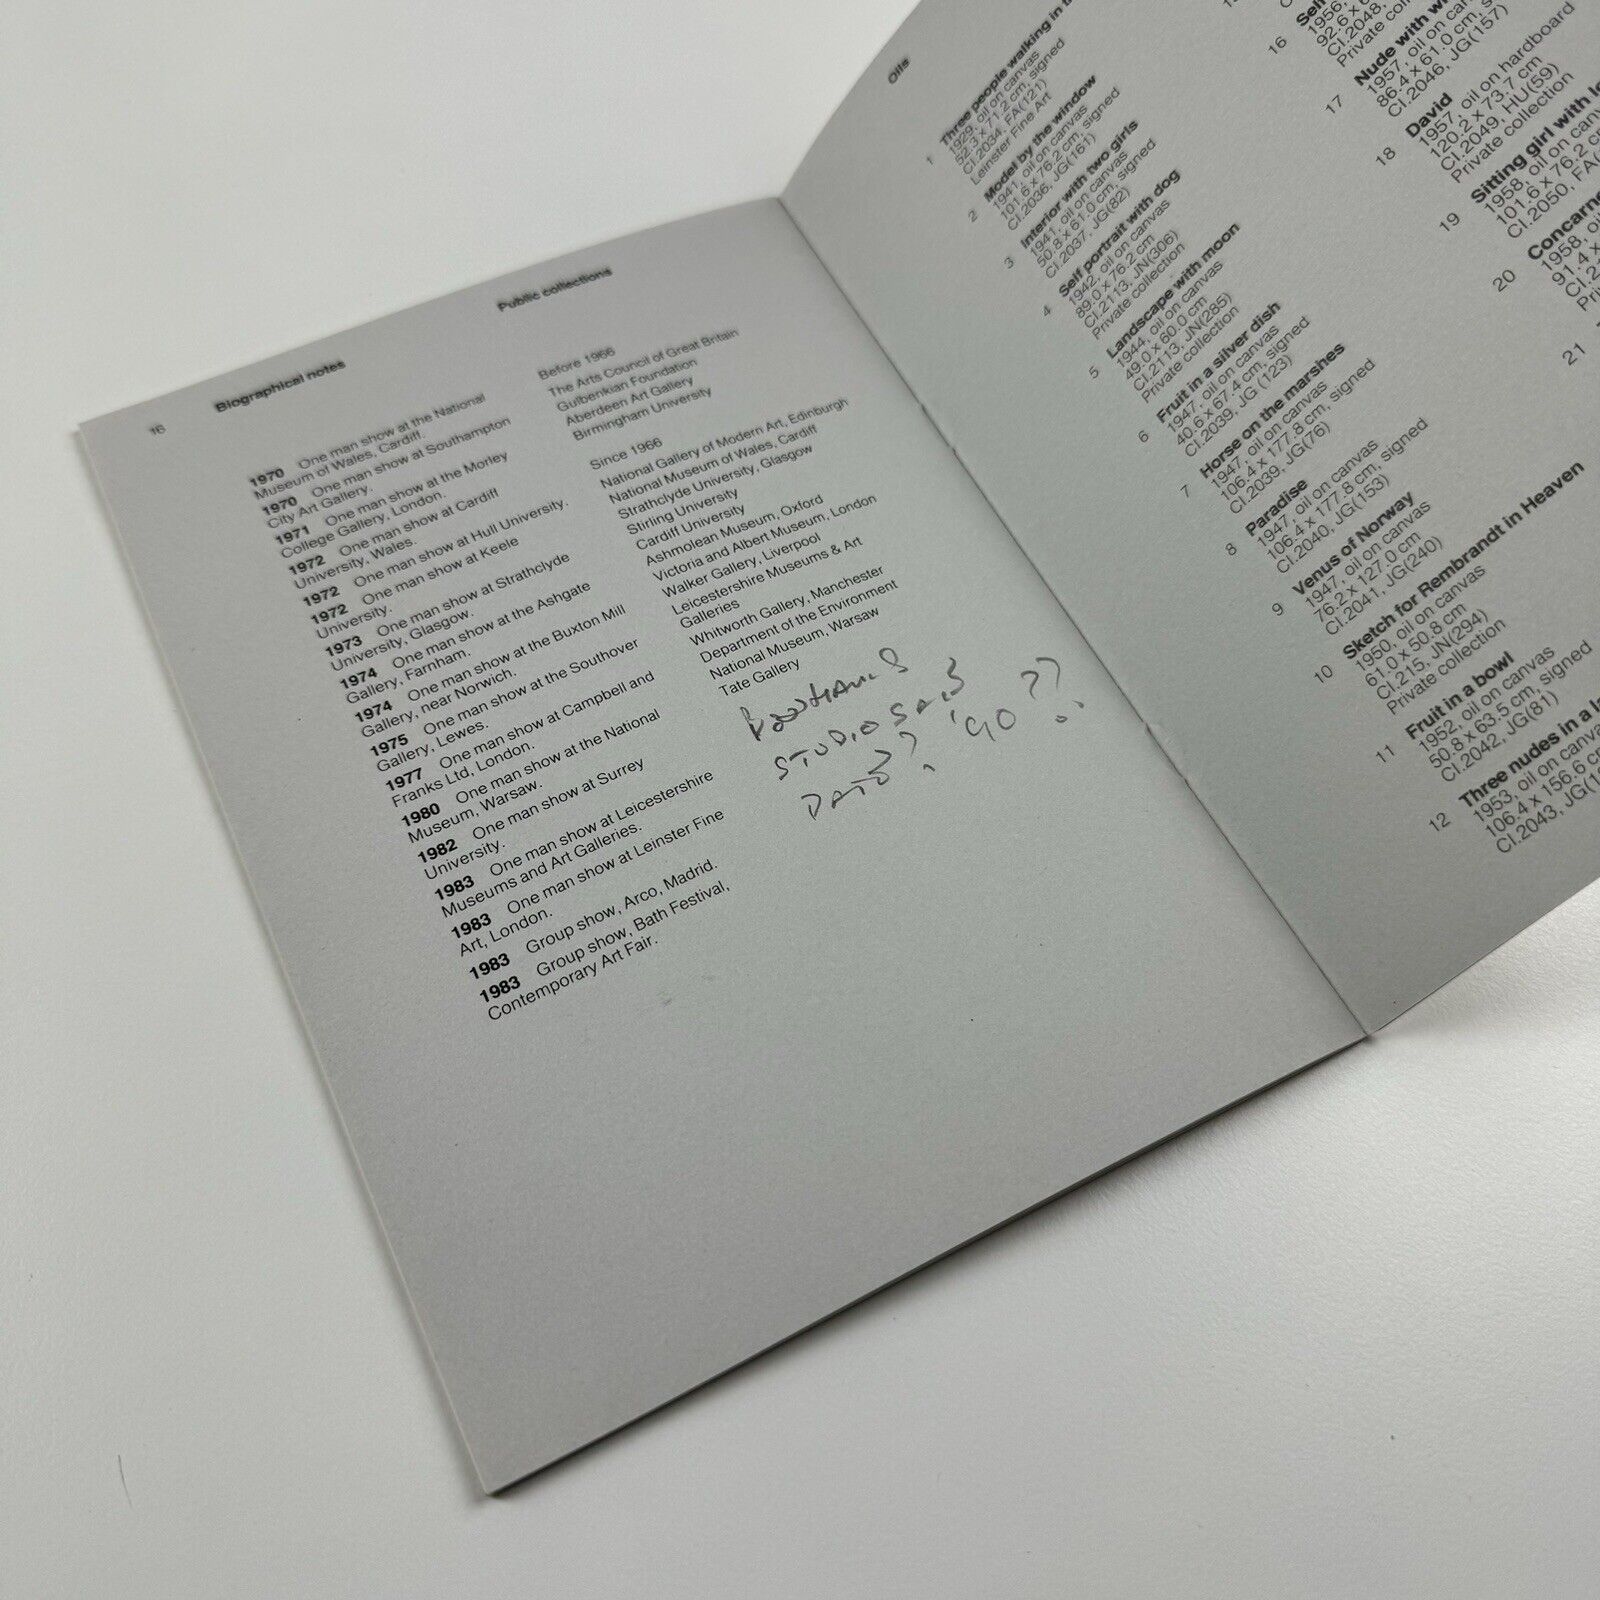 16
Biographical notes
1970 One man show at the National
Museum of Wales, Cardiff.
1970 One man show at Southampton
City Art Gallery.
1971 One man show at the Morley
College Gallery, London.
1972 One man show at Cardiff
University, Wales.
1972 One man show at Hull University.
1972 One man show at Keele
University.
1973 One man show at Strathclyde
University, Glasgow.
1974 One man show at the Ashgate
Gallery, Farnham.
1974 One man show at the Buxton Mill
Gallery, near Norwich.
1975 One man show at the Southover
Gallery, Lewes.
1977 One man show at Campbell and
Franks Ltd, London.
1980 One man show at the National
Museum, Warsaw.
1982 One man show at Surrey
University.
1983 One man show at Leicestershire
Museums and Art Galleries.
1983 One man show at Leinster Fine
Art, London.
1983 Group show, Arco, Madrid.
1983 Group show, Bath Festival,
Contemporary Art Fair.
Public collections
Before 1966
The Arts Council of Great Britain
Gulbenkian Foundation
Aberdeen Art Gallery
Birmingham University
Since 1966
National Gallery of Modern Art, Edinburgh
National Museum of Wales, Cardiff
Strathclyde University, Glasgow
Stirling University
Cardiff University
Ashmolean Museum, Oxford
Victoria and Albert Museum, London
Walker Gallery, Liverpool
Leicestershire Museums & Art
Galleries
Whitworth Gallery, Manchester
Department of the Environment
National Museum, Warsaw
Tate Gallery
STUDIO
'90 ??
Oils
1 Three people walking in
1929, oil on canvas
52.3 x 71.2 cm, signed
CI.2034, FA(121)
Leinster Fine Art
2 Model by the window
1941, oil on canvas
101.6 x 76.2 cm, signed
CI.2036, JG(161)
3 Interior with two girls
1941, oil on canvas
50.8 x 61.0 cm, signed
CI.2037, JG(82)
4 Self portrait with dog
1942, oil on canvas
89.0 x 76.2 cm
CI.2113, JN(306)
Private collection
5 Landscape with moon
1944, oil on canvas
49.0 x 60.0 cm
CI.2113, JN(285)
Private collection
6 Fruit in a silver dish
1947, oil on canvas
40.6 x 67.4 cm, signed
CI.2039, JG (123)
7 Horse on the marshes
1947, oil on canvas
106.4 x 177.8 cm, signed
CI.2039, JG(76)
8 Paradise
1947, oil on canvas
106.4 x 177.8 cm, signed
CI.2040, JG(153)
9 Venus of Norway
1947, oil on canvas
76.2 x 127.0 cm
CI.2041, JG(240)
10 Sketch for Rembrandt in Heaven
1950, oil on canvas
61.0 x 50.8 cm
CI.215, JN(294)
Private collection
11 Fruit in a bowl
1952, oil on canvas
50.8 x 63.5 cm, signed
CI.2042, JG(81)
12 Three nudes in a
1953, oil on
106.4 x 156.6 cm
CI.2043,
16
1956,
CI.2048,
Private
17 Nude with
1957, oil on
86.4 x 61.0 cm,
CI.2046, JG(157)
18 David
1957, oil on hardboard
120.2 x 73.7 cm
CI.2049, HU(59)
Private collection
19 Sitting girl with
1958, oil on
101.6 x 76.2
CI.2050,
20
1958,
91.4
21